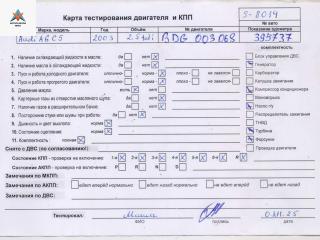 Карта тестирования двигателя и КПП
S-8014
№ авто
Марка, модель Год Объём № двиг. Показание одометра
Audi A6 C5 2003 2.5 tdi BDG 003068 395737
комплектность
1. Наличие охлаждающей жидкости в масле: да нет
2. Наличие масла в охлаждающей жидкости: да нет
3. Пуск и работа холодного двигателя: норма нет
4. Пуск и работа прогретого двигателя: норма нет
5. Давление масла: есть нет
6. Картерные газы из отверстия масляного щупа: да нет
7. Наличие газов в расширительном бачке: да нет
8. Посторонние стуки или шумы при работе: да нет
9. Дымность и цвет выхлопа: норма нет
10. Состояние сцепления: норма нет
11. Комплектность: полный нет
Блок управления ДВС
Генератор
Карбюратор
Катушка зажигания
Компрессор кондиционера
Моновпрыск
Насос гу
Распределитель зажигания
ТНВД
Турбина
Форсунки
Проводка двигателя
Снято с ДВС (по согласованию!):
Состояние КПП - проверка на включение: 1 2 3 4 5 R
Состояние АКПП - проверка на включение: P R N D
Замечания по МКПП:
Замечания по АКПП: едет вперёд нормально едет назад нормально не едет вперёд не едет назад
Замечания по ДВС:
Тестировал: Миша 04.11.25
ФИО подпись дата